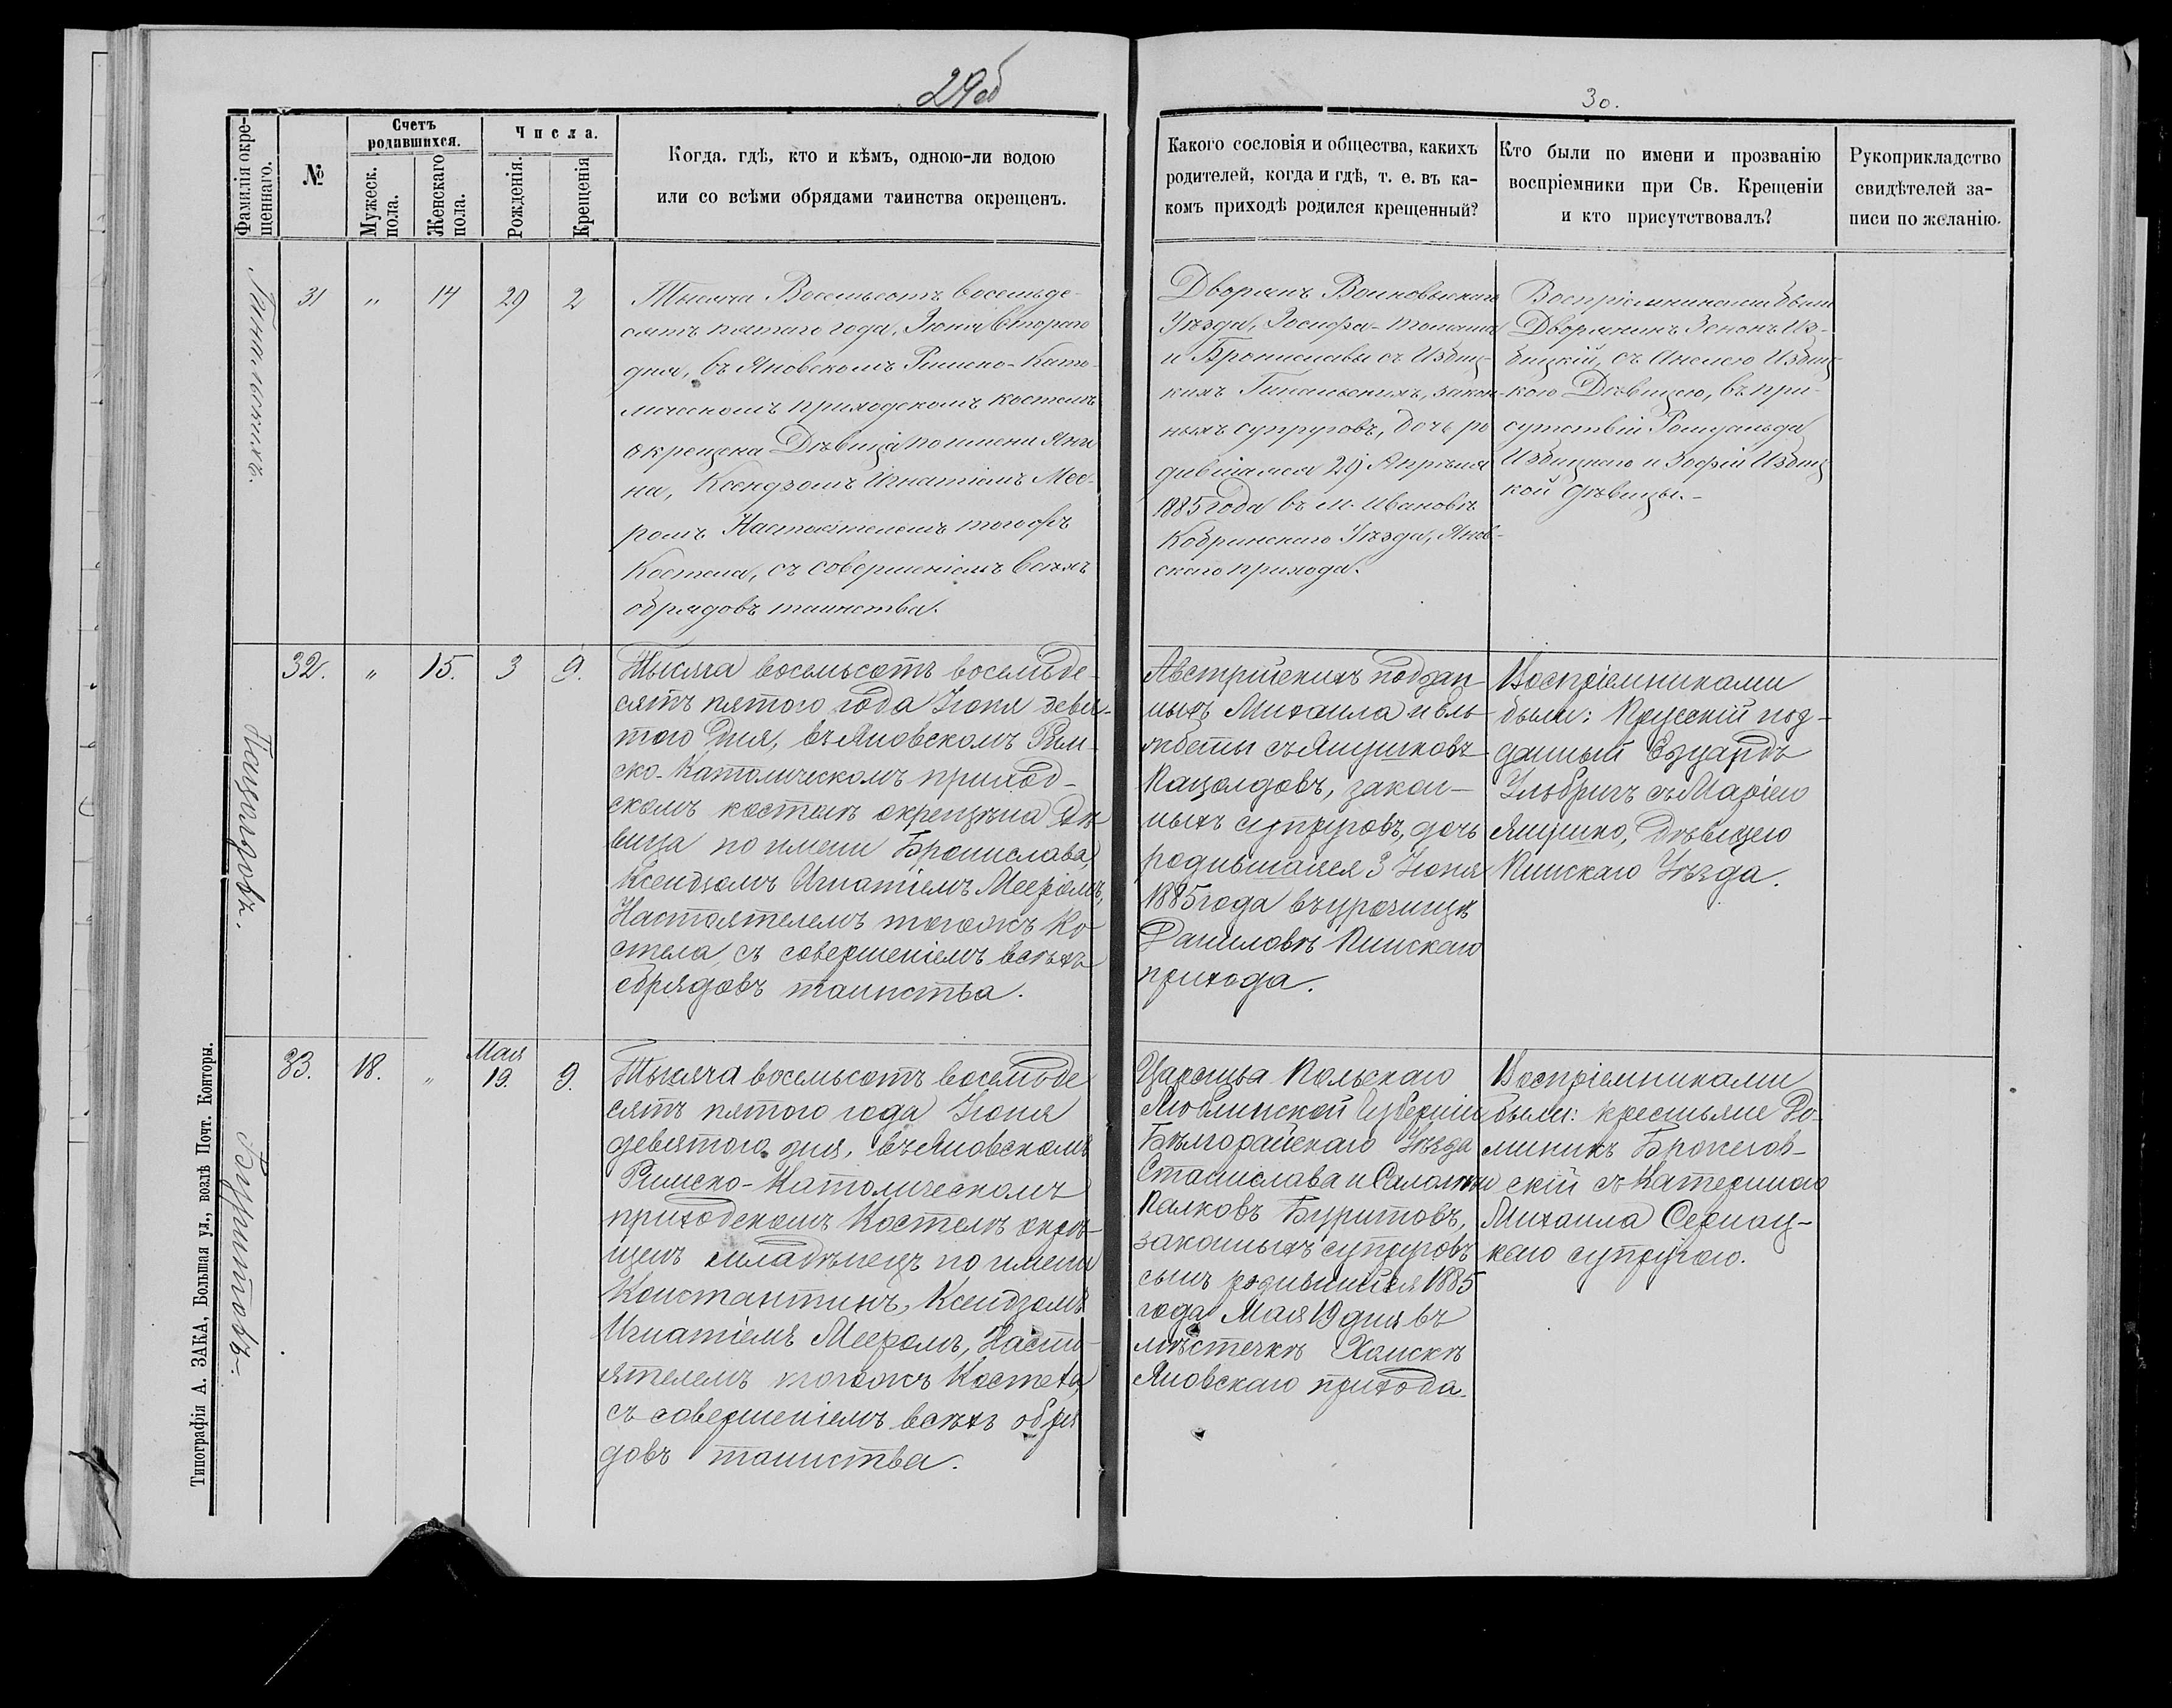 29об
30.
Фамилія окре-
щеннаго.
№
Счетъ
родившихся.
Мужеск.
пола.
Женскаго
пола.
Числа.
Рожденія.
Крещенія
Когда, гдѣ, кто и кѣмъ, одною-ли водою
или со всѣми обрядами таинства окрещенъ.
Какого сословія и общества, какихъ
родителей, когда и гдѣ, т. е. въ ка-
комъ приходѣ родился крещенный?
Кто были по имени и прозванію
воспріемники при Св. Крещеніи
и кто присутствовалъ?
Рукоприкладство
свидѣтелей за-
писи по желанію.
31 " 14 29 2
Тысяча Восемьсотъ восемьде-
сятъ пятаго года, Іюня втораго
дня, въ Яновскомъ Римско-Като-
лическомъ приходскомъ костелѣ
окрещена Дѣвица по имени Яни
на, Ксендзомъ Игнатіемъ Мее-
ромъ Настоятелемъ тогожъ
Костела, съ совершеніемъ всѣхъ
обрядовъ таинства.
Дворянъ Волковыскаго
Уѣзда, Іосифа-Томаша
и Брониславы съ Избиц-
кихъ закон-
ныхъ супруговъ, дочь ро
дившаяся 29 Апрѣля
1885 года въ м. Ивановѣ
Кобринскаго Уѣзда, Янов-
скаго прихода.
Воспріемниками были
Дворянинъ Зенонъ Из-
бицкій, съ Анелею Избиц
кою Дѣвицею, въ при-
сутствіи Ромуальда
Избицкаго и Зофіи Избиц
кой дѣвицы.-
Пацолдовъ.
32. " 15. 3 9.
Тысяча восемьсотъ восемьде-
сятъ пятого года Іюня девя-
того дня, въ Яновскомъ Рим-
ско-Католическомъ приход-
скомъ костелѣ окрещена дѣ
вица по имени Бронислава,
Ксендзомъ Игнатіемъ Мееромъ,
Настоятелемъ тогожъ Ко-
стела, съ совершеніемъ всѣхъ
обрядовъ таинства.
Австрійскихъ поддан-
ныхъ Михаила и Эль-
жбеты съ Янушковъ
Пацолдовъ, закон-
ныхъ супруговъ, дочь
родившаяся 3 Іюня
1885 года въ урочищѣ
Даниловѣ Пинскаго
прихода.
Воспріемниками
были: Прусскій под-
данный Эдуардъ
Ульбрихъ съ Маріею
Янушко, Дѣвицею
Пинскаго Уѣзда.
Буритовъ.
33. 18. "
Мая
19. 9.
Тысяча восемьсотъ восемьде
сятъ пятого года Іюня
девятого дня, въ Яновскомъ
Римско-Католическомъ
приходскомъ Костелѣ окре-
щенъ младенецъ по имени
Константинъ, Ксендзомъ
Игнатіемъ Мееромъ, Насто-
ятелемъ тогожъ Костела,
съ совершеніемъ всѣхъ обря
довъ таинства.
Царства Польскаго
Люблинской Губерніи
Бѣлгорайскаго Уѣзда
Станислава и Саломеи
Палковъ Буритовъ,
законныхъ супруговъ
сынъ родившійся 1885
года Мая 19 дня въ
мѣстечкѣ Хомскѣ
Яновскаго прихода.
Воспріемниками
были: крестьяне До-
миникъ
скій съ Катериною
Михаила
кого супругою.
Типографія А. ЗАКА, Большая ул., возлѣ Почт. Конторы.